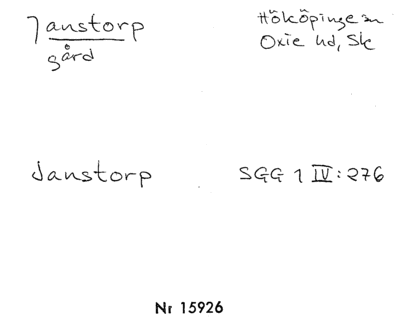 Janstorp Hököpinge sn
gård Oxie hd, Sk
Janstorp SGG 1 IV: 276
Nr 15926